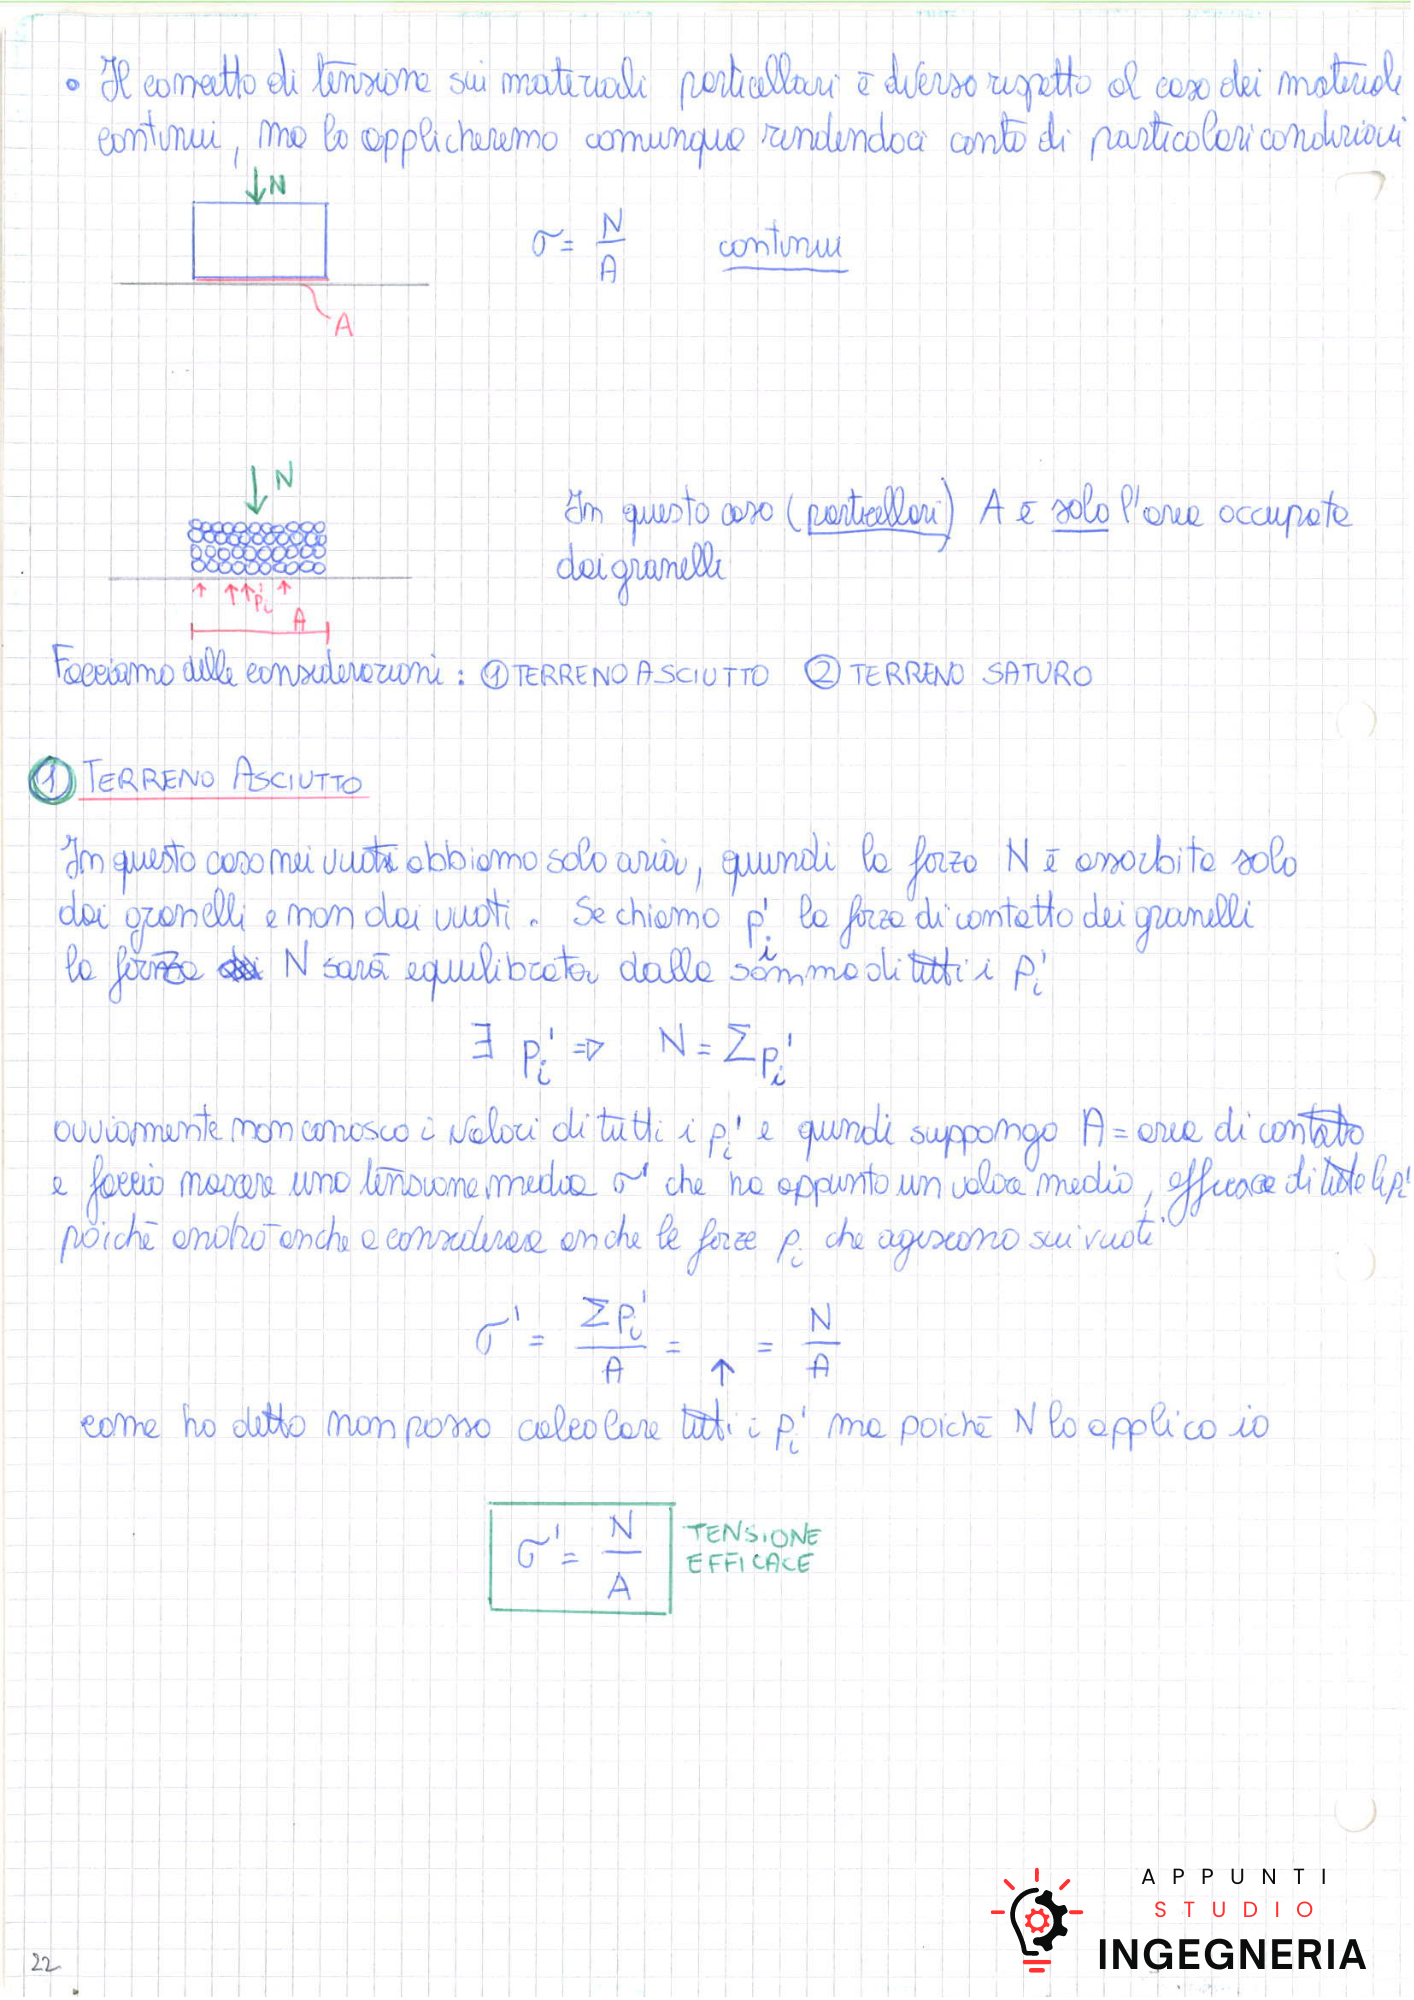 • Il concetto di tensione sui materiali particellari è diverso rispetto al caso dei materiali
continui, ma lo applicheremo comunque rendendoci conto di particolari condizioni
↓N
σ = N/A continui
A
↓N
In questo caso (particellari) A è solo l'area occupata
dai granelli
pi'
A
Facciamo delle considerazioni: ① TERRENO ASCIUTTO ② TERRENO SATURO
① TERRENO ASCIUTTO
In questo caso nei vuoti abbiamo solo aria, quindi la forza N è assorbita solo
dai granelli e non dai vuoti. Se chiamo pi' la forza di contatto dei granelli
la forza N sarà equilibrata dalla somma di tutti i pi'
∃ pi' ⇒ N = Σpi'
ovviamente non conosco i valori di tutti i pi' e quindi suppongo A = area di contatto
e faccio nascere una tensione media σ' che ha appunto un valore medio, efficace di tutte le pi'
poiché andrò anche a considerare anche le forze pi che agiscono sui vuoti
σ' = Σpi'/A = ↑ = N/A
come ho detto non posso calcolare tutti i pi' ma poiché N lo applico io
σ' = N/A TENSIONE
EFFICACE
22
APPUNTI
STUDIO
INGEGNERIA